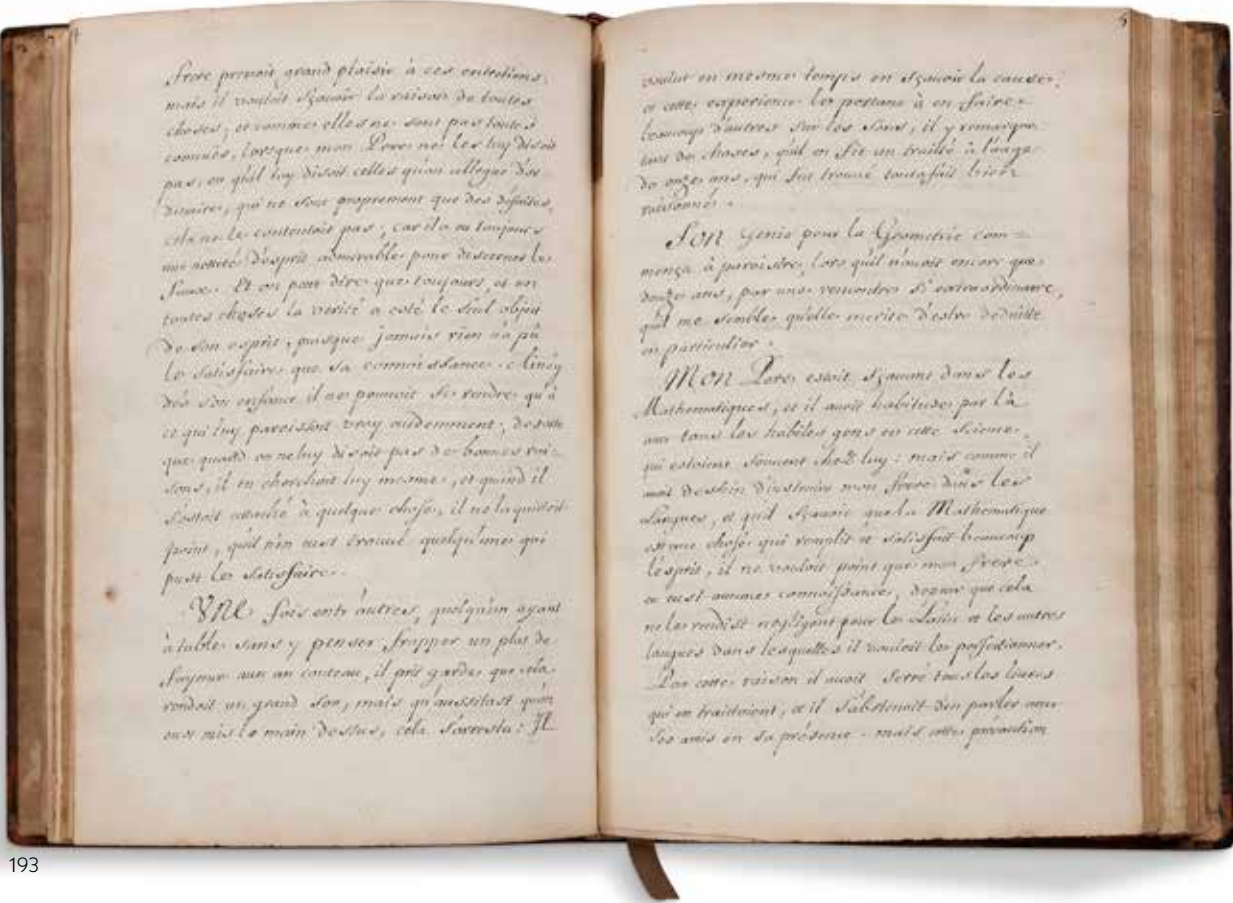 4
frere prenoit grand plaisir à ces entretiens,
mais il vouloit sçavoir la raison de toutes
choses, et comme elles ne sont pas toutes
connuës, lorsque mon Pere ne les luy disoit
pas, ou qu'il luy disoit celles qu'on allegue d'or-
dinaire, qui ne sont proprement que des défaites,
cela ne le contentoit pas, car il a eu toujours
une netteté d'esprit admirable pour discerner le
faux. Et on peut dire que toujours, et en
toutes choses la verité a esté le seul objet
de son esprit, puisque jamais rien n'a pû
le satisfaire que sa connoissance. Ainsy
dés son enfance il ne pouvoit se rendre qu'à
ce qui luy paroissoit vray evidemment, de sorte
que quand on ne luy disoit pas de bonnes rai-
sons, il en cherchoit luy mesme, et quand il
s'estoit attaché à quelque chose, il ne la quittoit
point, qu'il n'en eust trouvé quelqu'une qui
pust le satisfaire.
UNE fois entr'autres, quelqu'un ayant
à table sans y penser frapper un plat de
fayence avec un couteau, il prit garde que cela
rendoit un grand son, mais qu'aussitast qu'on
eust mis la main dessus, cela s'arresta: IL
5
voulut en mesme temps en sçavoir la cause,
et cette experience le portant à en faire
beaucoup d'autres sur les sons, il y remarqua
tant de choses, qu'il en fit un traitté à l'aage
de onze ans, qui fut trouvé toutafait bien
raisonné.
SON genie pour la Geometrie com=
mença à paroistre, lors qu'il n'avoit encore que
douze ans, par une rencontre si extraordinaire,
qu'il me semble qu'elle merite d'estre deduitte
en particulier.
MON Pere estoit sçavant dans les
Mathematiques, et il avoit habitude par là
avec tous les habiles gens en cette science,
qui estoient souvent chez luy: mais comme il
avoit dessein d'instruire mon frere dans les
Langues, et qu'il sçavoit que la Mathematique
est une chose qui remplit et satisfait beaucoup
l'esprit, il ne vouloit point que mon frere
en eust aucune connoissance, de peur que cela
ne le rendist negligent pour le Latin et les autres
langues dans lesquelles il vouloit le perfectionner.
Par cette raison il avoit serré tous les livres
qui en traittoient, et il s'abstenoit d'en parler avec
ses amis en sa présence. mais cette précaution
193